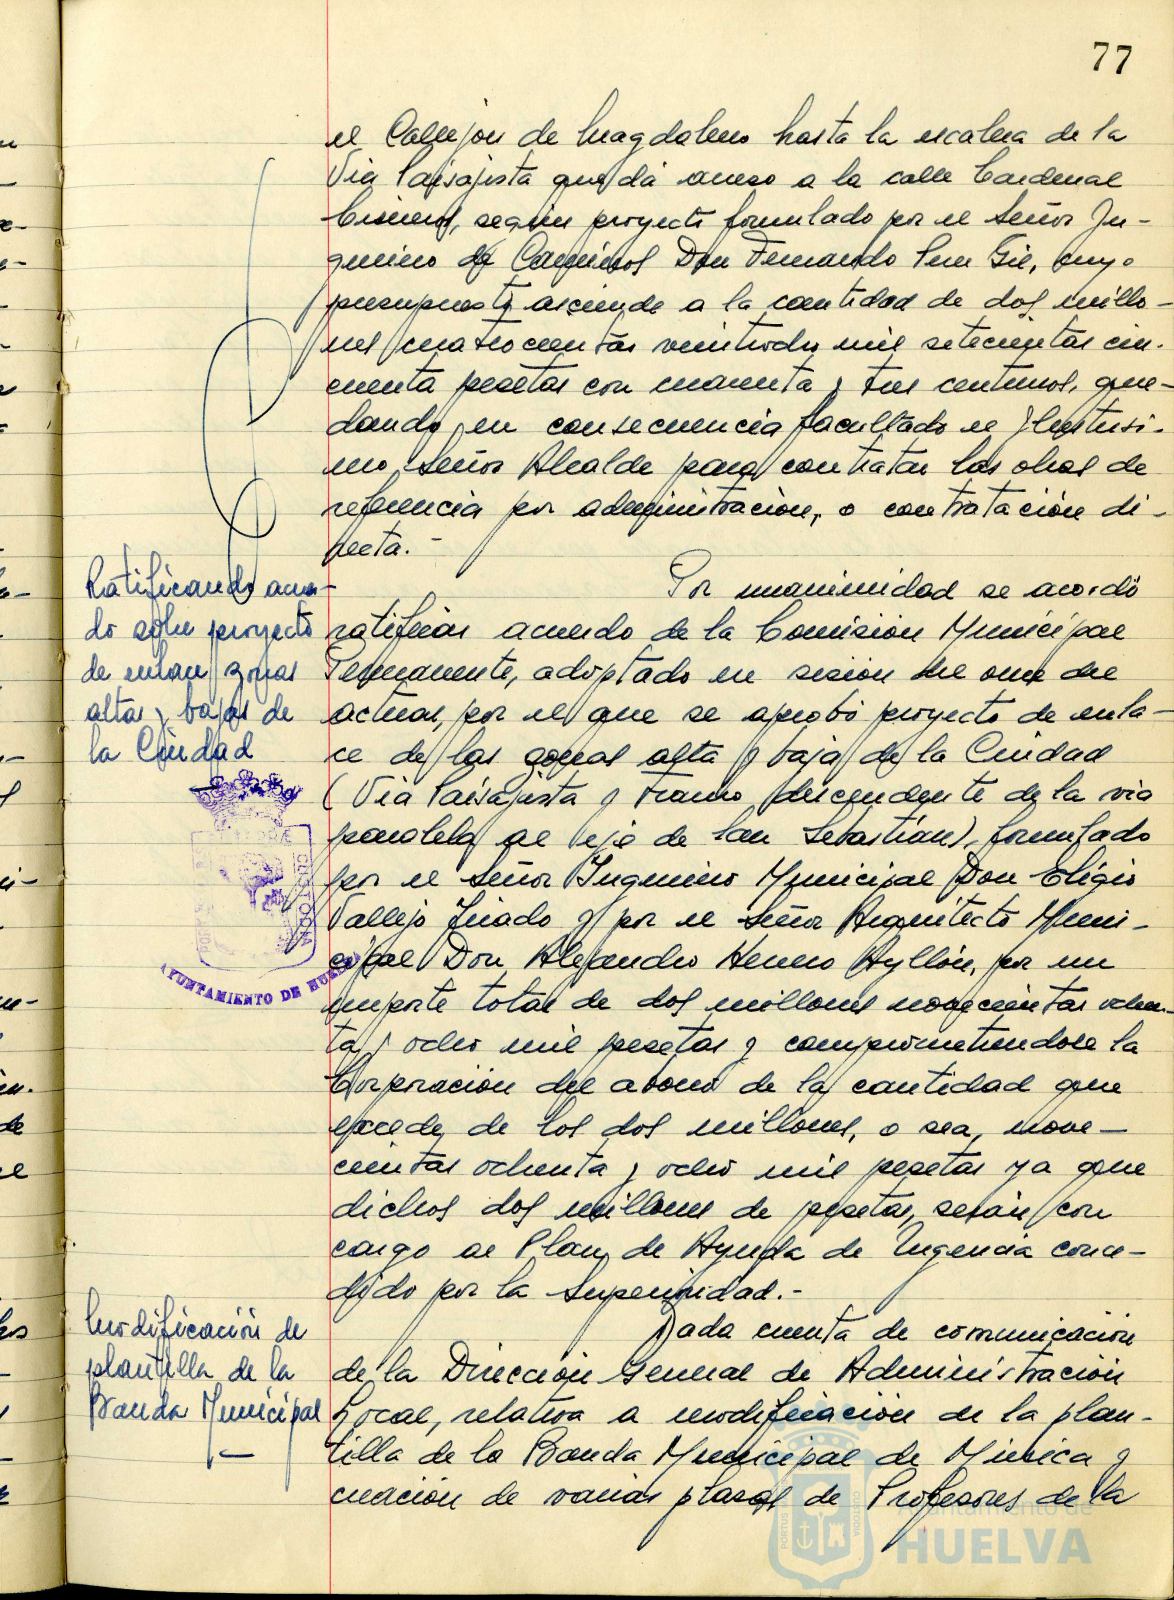 77
el Callejón de Magdalena hasta la escalera de la
Via Paisajista que dá acceso a la calle Cardenal
Cisneros, según proyecto formulado por el Señor In-
geniero de Caminos Don Fernando Pen Gil, cuyo
presupuesto asciende a la cantidad de dos millo-
nes cuatrocientas veintiocho mil setecientas cin-
cuenta pesetas con cuarenta y tres centimos, que-
dando, en consecuencia facultado el Ilustrisi-
mo Señor Alcalde para contratar las obras de
referencia por administración, o contratación di-
recta.-
Ratificando acuer-
do sobre proyecto
de enlace zonas
altas y bajas de
la Ciudad
Por unanimidad se acordó
ratificar acuerdo de la Comisión Municipal
Permanente, adoptado en sesión del once del
actual, por el que se aprobó proyecto de enla-
ce de las zonas alta y baja de la Ciudad
(Via Paisajista y tramo descendente de la via
paralela al eje de San Sebastián), formulado
por el Señor Ingeniero Municipal Don Eligio
Vallejo Jurado y por el Señor Arquitecto Muni-
cipal Don Alejandro Herrero Ayllón, por un
importe total de dos millones novecientas ochen-
ta y ocho mil pesetas y comprometiendose la
Corporación del abono de la cantidad que
excede, de los dos millones, o sea, nove-
cientas ochenta y ocho mil pesetas ya que
dichos dos millones de pesetas, serán con
cargo al Plan, de Ayuda de Urgencia conce-
dido por la Superioridad.-
AYUNTAMIENTO DE HUELVA
Modificación de
plantilla de la
Banda Municipal
Dada cuenta de comunicación
de la Dirección General de Administración
Local, relativa a modificación de la plan-
tilla de la Banda Municipal de Música y
creación de varias plazas de Profesores de la
Ayuntamiento de
HUELVA